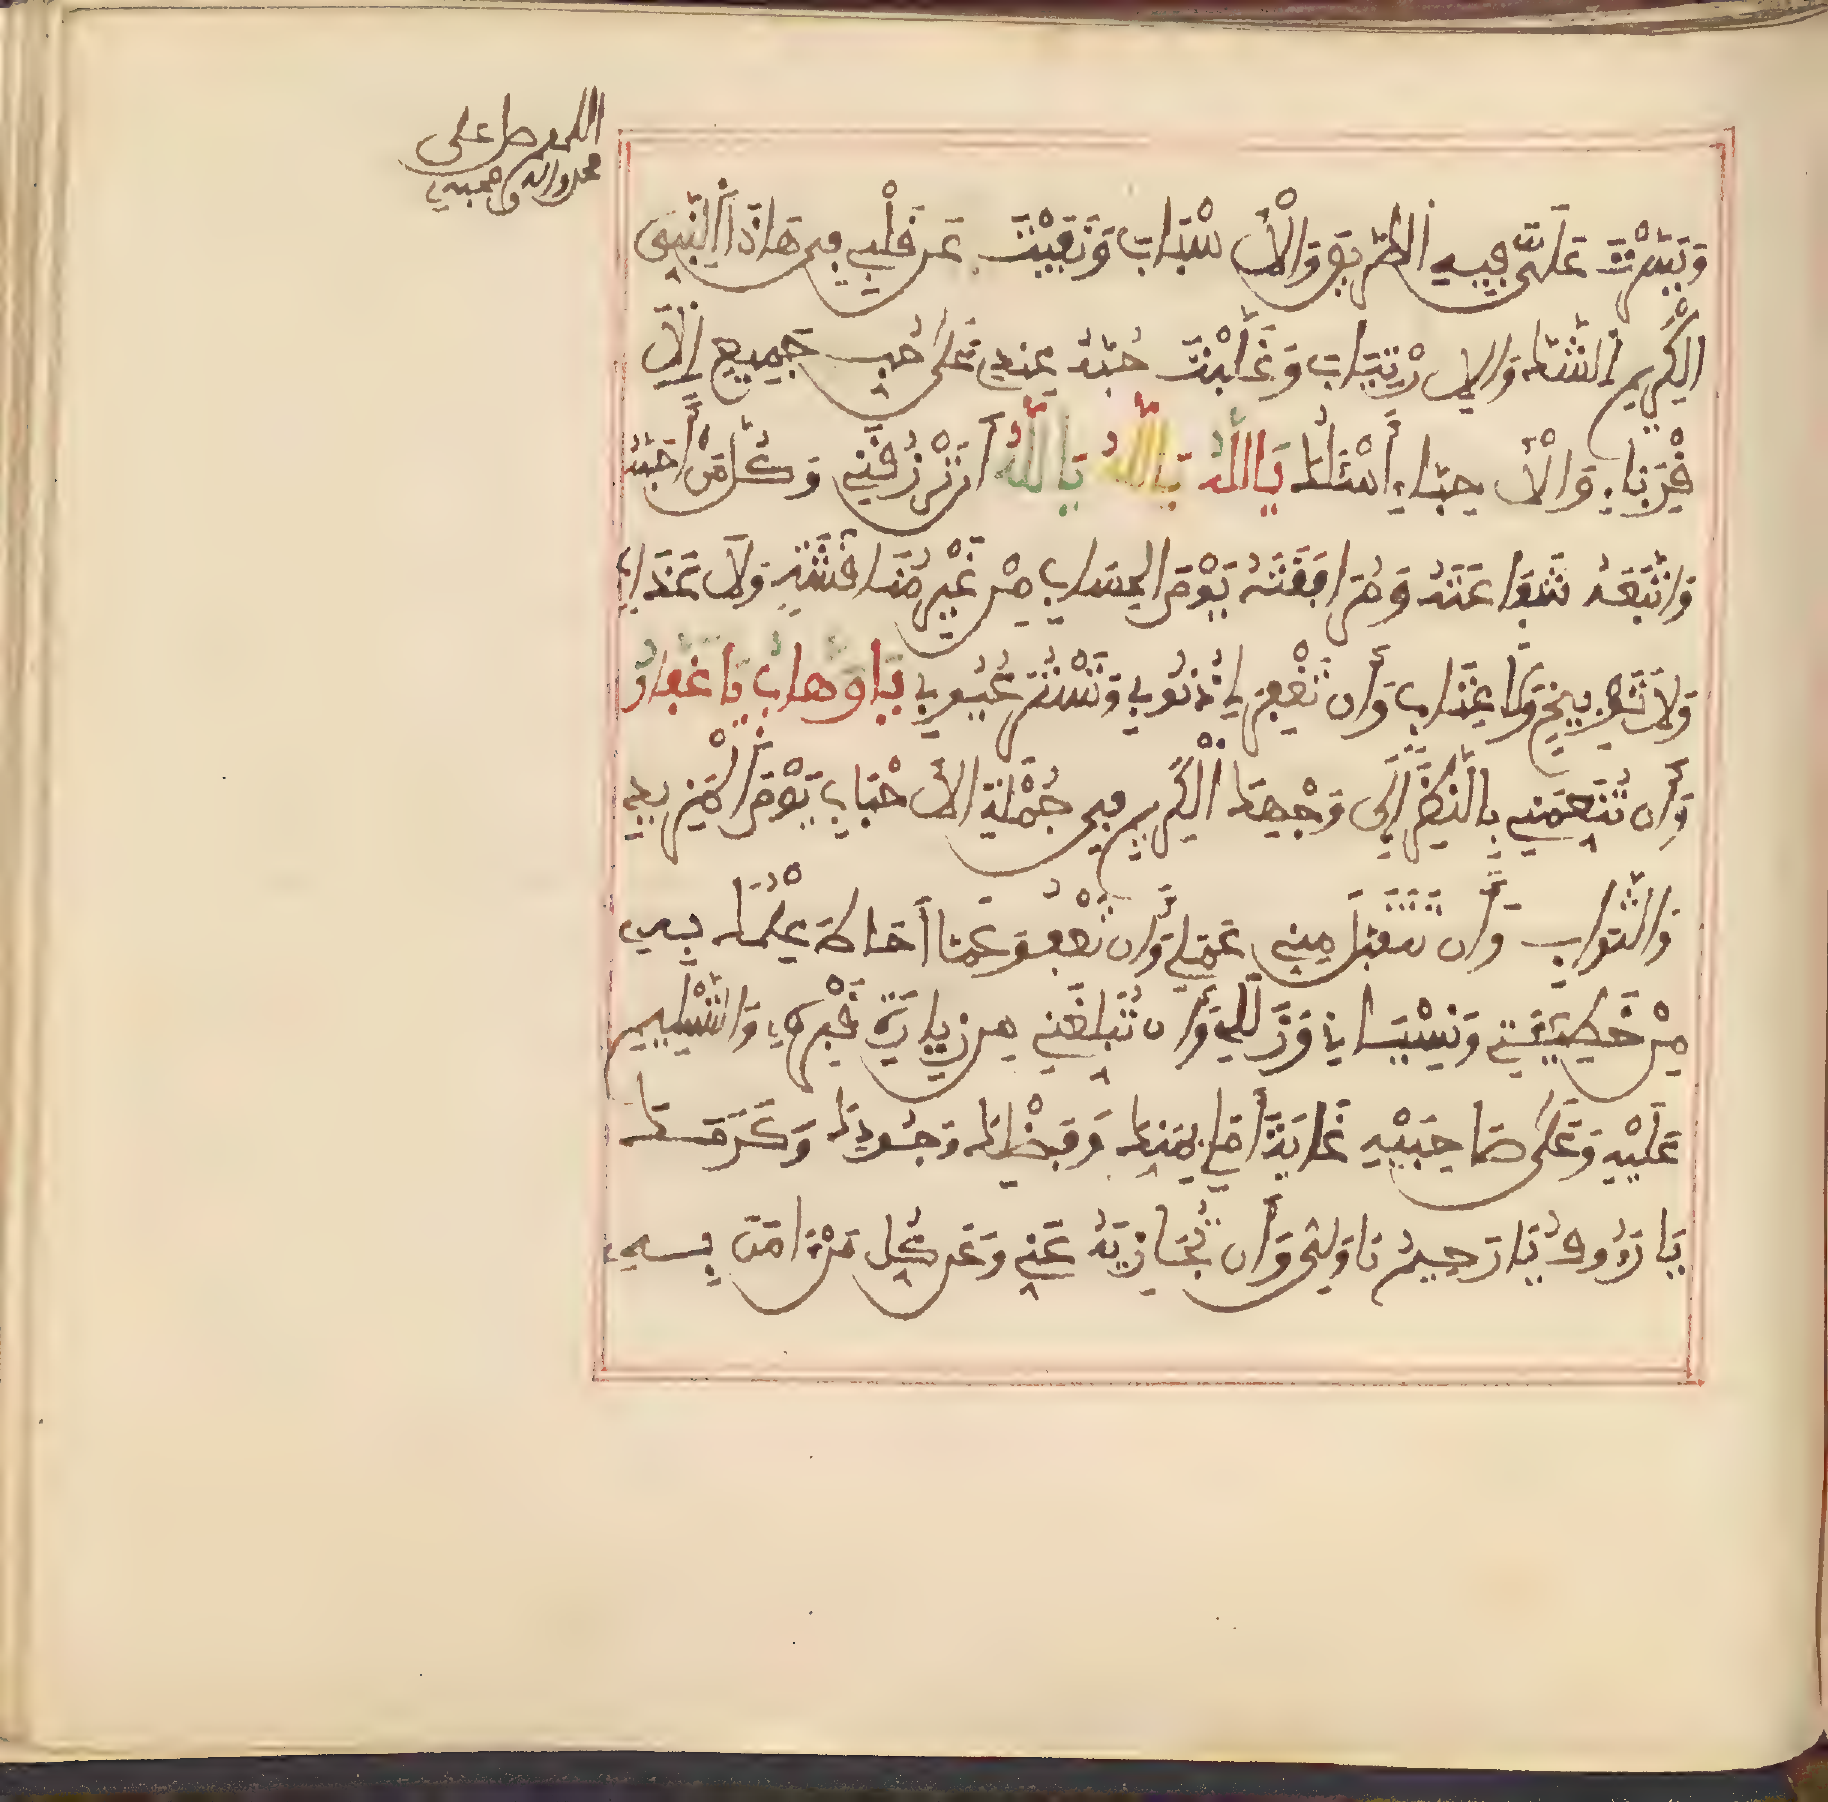 اللهم صل على
محمد واله وصحبه
وَيَسَّرْتَ عَلَيَّ فِيهِ الطَّرِيقَ وَالْأَسْبَابَ وَنَفَيْتَ عَن قَلْبِي فِي هَاذَا النَّبِيِّ
الْكَرِيمِ الشَّكَّ وَالِارْتِيَابَ وَغَلَّبْتَ حُبَّهُ عِندِي عَلَى حُبِّ جَمِيعِ الْأَ
قْرِبَاءِ وَالْأَحِبَّاءِ أَسْئَلُكَ يَااللَّهُ يَااللَّهُ يَااللَّهُ أَن تَرْزُقَنِي وَكُلَّ مَنْ أَحَبَّهُ
وَاتَّبَعَهُ شَفَاعَتَهُ وَمُرَافَقَتَهُ يَوْمَ الْحِسَابِ مِنْ غَيْرِ مُنَاقَشَةٍ وَلَا عَذَابٍ
وَلَا تَوْبِيخٍ وَلَا عِتَابٍ وَأَن تَغْفِرَ لِي ذُنُوبِي وَتَسْتُرَ عُيُوبِي يَا وَهَّابُ يَا غَفَّارُ
وَأَن تُنَعِّمَنِي بِالنَّظَرِ إِلَى وَجْهِكَ الْكَرِيمِ فِي جُمْلَةِ الْأَحْبَابِ يَوْمَ الْمَزِيدِ
وَالثَّوَابِ وَأَن تَتَقَبَّلَ مِنِّي عَمَلِي وَأَن تَعْفُوَ عَمَّا أَحَاطَ عِلْمُكَ بِهِ
مِنْ خَطِيئَتِي وَنِسْيَانِي وَزَلَلِي وَأَن تُبَلِّغَنِي مِن زِيَارَةِ قَبْرِهِ وَالتَّسْلِيمِ
عَلَيْهِ وَعَلَى صَاحِبَيْهِ غَايَةَ أَمَلِي بِمَنِّكَ وَفَضْلِكَ وَجُودِكَ وَكَرَمِكَ
يَا رَءُوفُ يَا رَحِيمُ يَا وَلِيُّ وَأَن تُجَازِيَهُ عَنِّي وَعَن كُلِّ مَنْ ءَامَنَ بِهِ